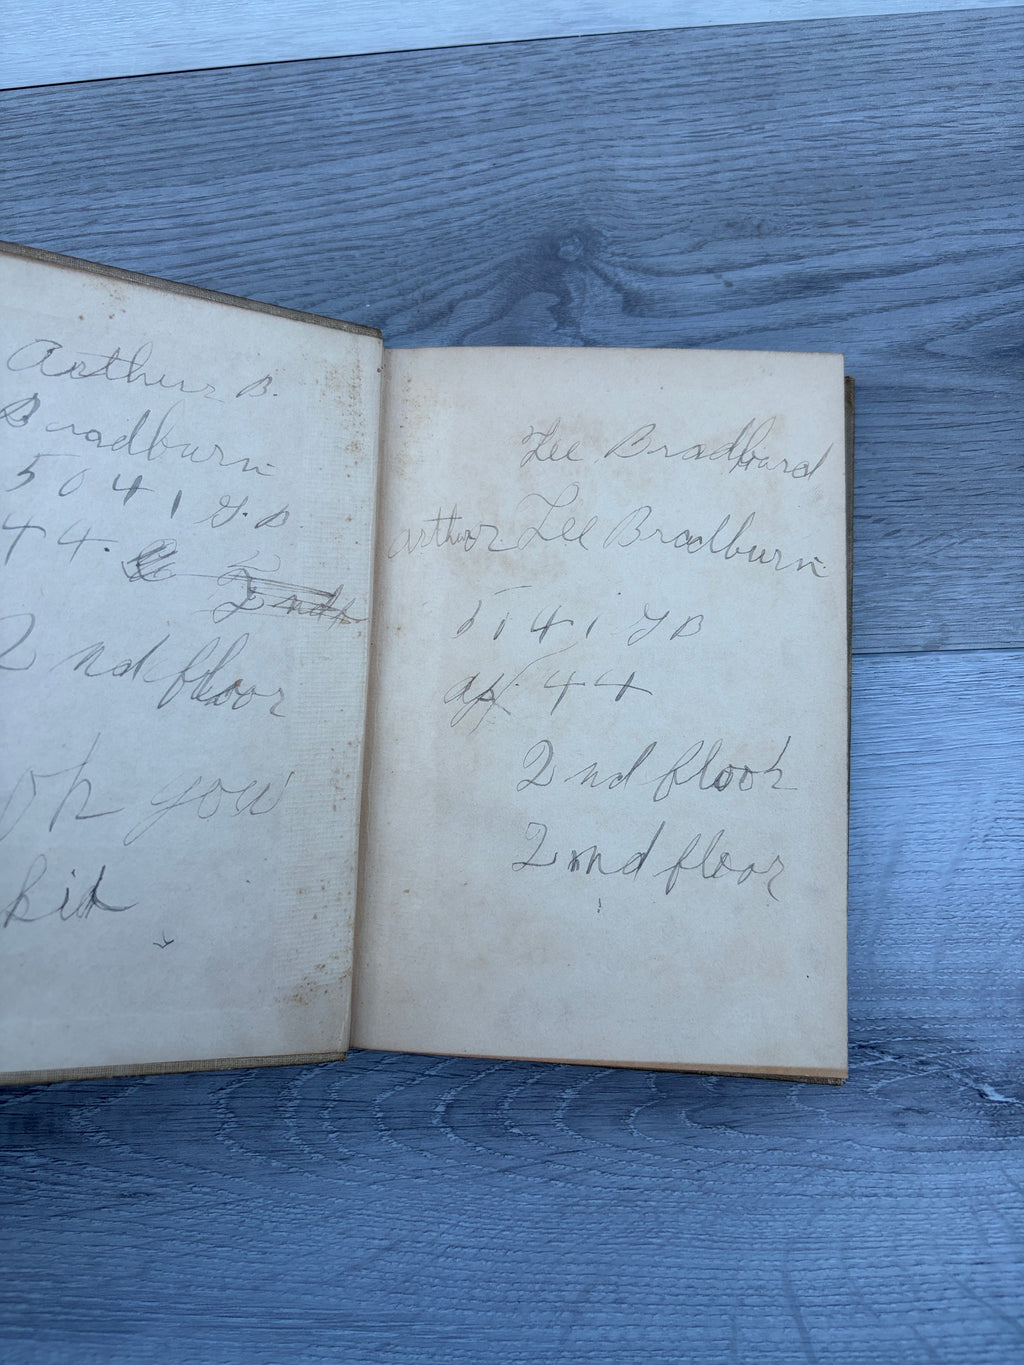 Arthur B.
Bradburn
5041 G. B.
44.
2nd floor
oh you
kid
Lee Bradburd
Arthur Lee Bradburn
5141 G B
ap. 44
2nd floor
2nd floor